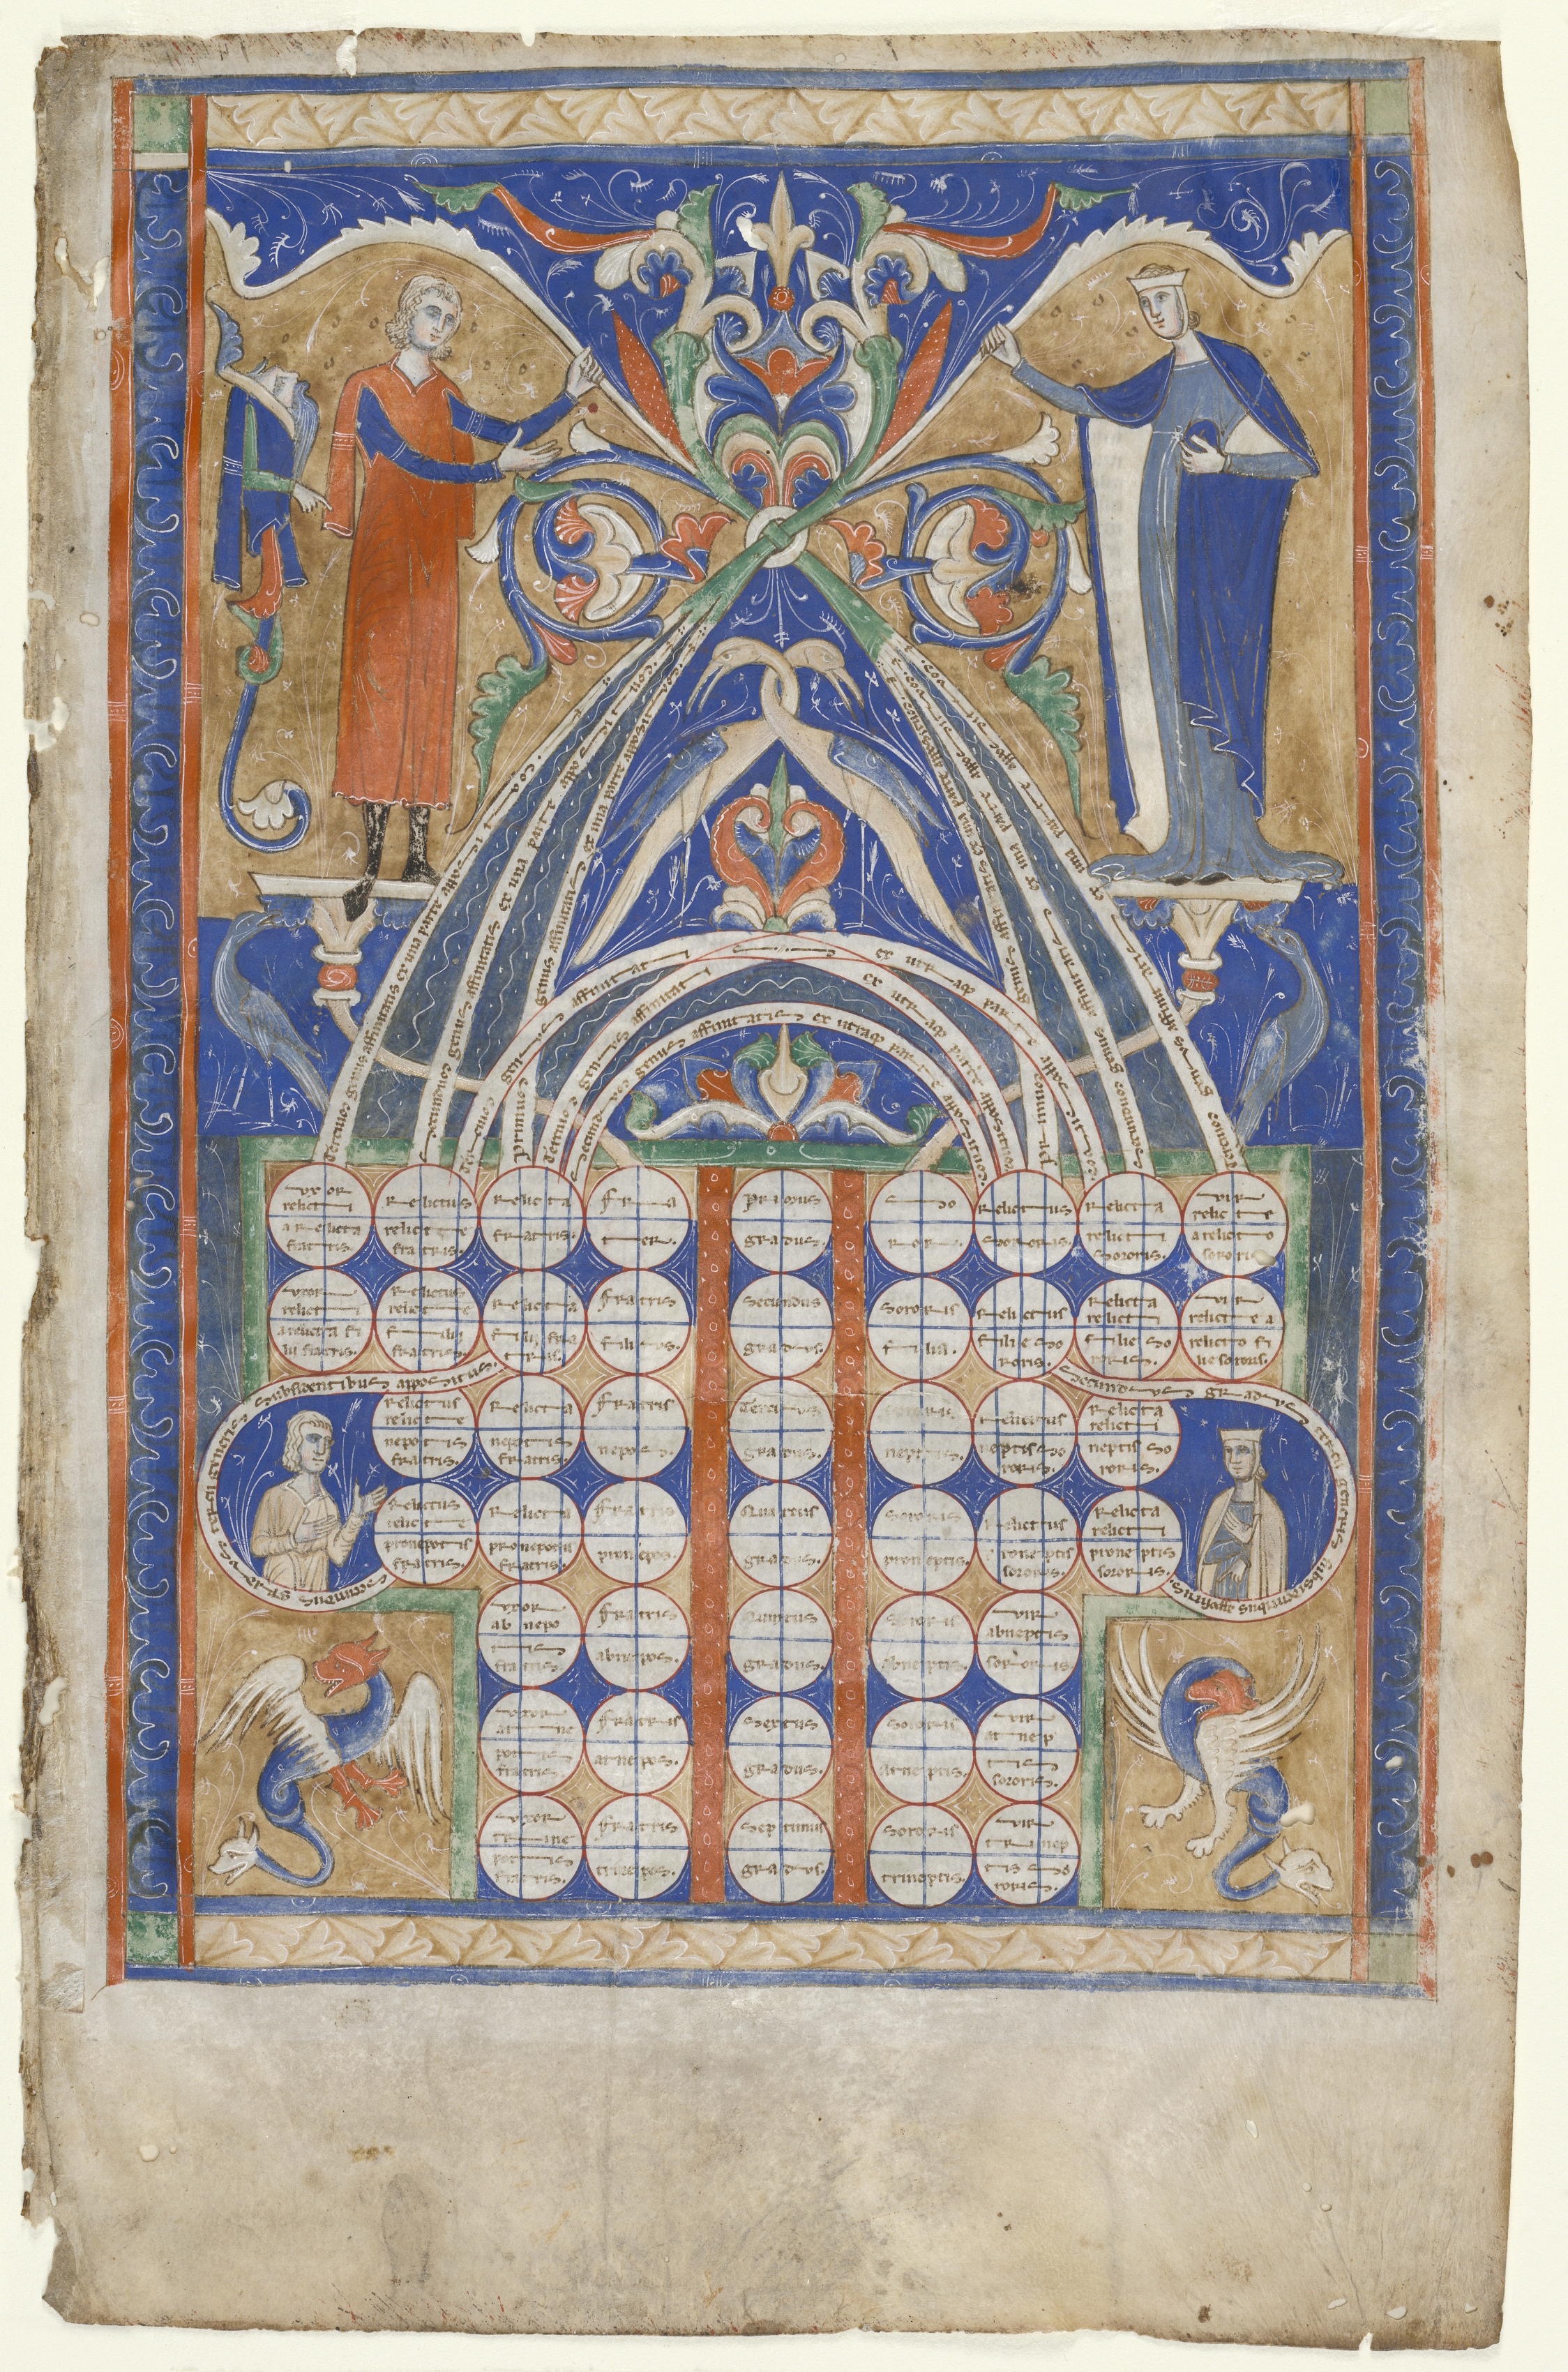 Tercium genus affinitatis ex una parte
Secundum genus affinitatis ex una parte
Primum genus affinitatis ex una parte
genus affinitatis ex utraque parte
Secundum genus affinitatis ex utraque parte
uxor
relicti
a relicta
fratris.
Relictus
relicte
fratris.
Relicta
fratris.
Fra
ter.
Primus
gradus.
So
ror.
Relictus
sororis.
Relicta
relicti
sororis.
vir
relicte
a relicto
sororis
uxor
relicti
a relicta fi
lii fratris.
Relictus
relicte
filii
fratris.
Relicta
filii fra
tris.
Fratris
filius.
Secundus
gradus.
Sororis
filia.
Relictus
filie so
roris.
Relicta
relicti
filie so
roris.
vir
relicte a
relicto fi
lie sororis.
subsequentibus appositus.
Secundus gradus tercii generis subsequentibus
Relictus
relicte
nepotis
fratris.
Relicta
nepotis
fratris.
Fratris
nepos.
Tercius
gradus.
Sororis
neptis.
Relictus
neptis so
roris.
Relicta
relicti
neptis so
roris.
Relictus
relicte
pronepotis
fratris.
Relicta
pronepotis
fratris.
Fratris
pronepos.
Quartus
gradus.
Sororis
proneptis.
Relictus
proneptis
sororis.
Relicta
relicti
proneptis
sororis.
uxor
abnepo
tis
fratris.
Fratris
abnepos.
Quintus
gradus.
Sororis
abneptis.
vir
abneptis
sororis.
uxor
atne
potis
fratris.
Fratris
atnepos.
Sextus
gradus.
Sororis
atneptis.
vir
atnep
tis
sororis.
uxor
trine
potis
fratris.
Fratris
trinepos.
Septimus
gradus.
Sororis
trineptis.
vir
trinep
tis so
roris.